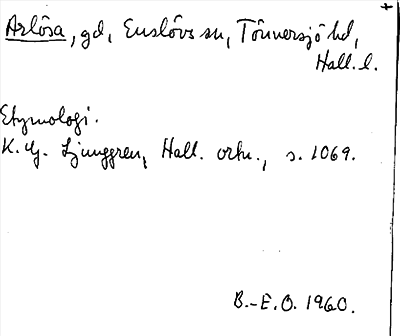 Arlösa, gd, Enslövs sn, Tönnersjö hd,
Hall. l.
Etymologi.
K. G. Ljunggren, Hall. ortn., s. 1069.
B.-E.O. 1960.